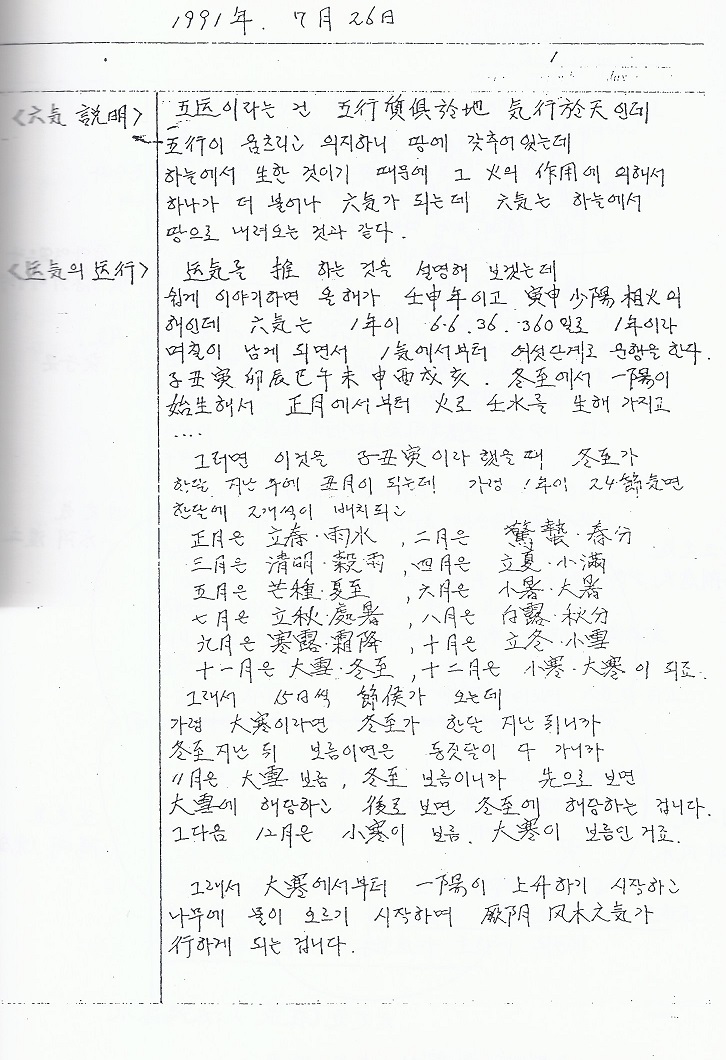 1991年. 7月 26日
1
<六気 説明>
五运이라는 건 五行質俱於地 気行於天인데
五行이 움츠리고 의지하니 땅에 갖추어 있는데
하늘에서 生한 것이기 때문에 그 火의 作用에 의해서
하나가 더 불어나 六気가 되는데 六気는 하늘에서
땅으로 내려오는 것과 같다.
<运気의 运行>
运気를 推 하는 것을 설명해 보겠는데
쉽게 이야기하면 올해가 壬申年이고 寅申少陽相火의
해인데 六気는 1年이 6·6. 36. 360일로 1年이라
며칠이 남게 되면서 1氣에서부터 여섯단계로 운행을 한다.
子丑寅卯辰巳午未申酉戌亥. 冬至에서 一陽이
始生해서 正月에서부터 火로 壬水를 生해 가지고
....
그러면 이것을 子丑寅이라 했을 때 冬至가
한달 지난 후에 丑月이 되는데 가령 1年이 24節候면
한달에 2개씩이 배치되고
正月은 立春·雨水 , 二月은 驚蟄·春分
三月은 清明·穀雨 , 四月은 立夏·小滿
五月은 芒種·夏至 , 六月은 小暑·大暑
七月은 立秋·處暑 , 八月은 白露·秋分
九月은 寒露·霜降 , 十月은 立冬·小雪
十一月은 大雪·冬至 , 十二月은 小寒·大寒이 되죠.
그래서 15日씩 節候가 오는데
가령 大寒이라면 冬至가 한달 지난 뒤니까
冬至 지난 뒤 보름이면은 동짓달이 다 가니까
11月은 大雪 보름, 冬至 보름이니까 先으로 보면
大雪에 해당하고 後로 보면 冬至에 해당하는 겁니다.
그다음 12月은 小寒이 보름. 大寒이 보름인 거죠.
그래서 大寒에서부터 一陽이 上升하기 시작하고
나무에 물이 오르기 시작하며 厥阴 风木之気가
行하게 되는 겁니다.